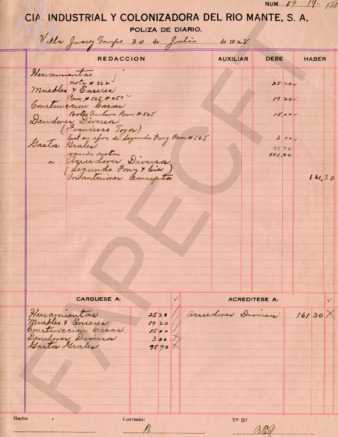 NUM. 69
CIA. INDUSTRIAL Y COLONIZADORA DEL RIO MANTE, S. A.
POLIZA DE DIARIO.
Villa Juarez Tamps 30 de Julio de 1928
REDACCION AUXILIAR DEBE HABER
Herramientas
nota # 362 25 20
Muebles y Enseres
19 20
Construccion Casas
Rem #565 15,00
Deudores Diversos
(Francisco Toyos)
Segundo Fong Rem #565 3 00
Gastos Grales
98 90
a Acreedores Diversos
(Segundo Fong & Cia)
161,30
CARGUESE A: ACREDITESE A:
Herramientas 25 20 Acreedores Diversos 161 30
Muebles y Enseres 19 20
Construccion Casas 15 00
Deudores Diversos 3 00
Gastos Grales 98 90
Hecho Correcto: Vº Bº
FAPECFT